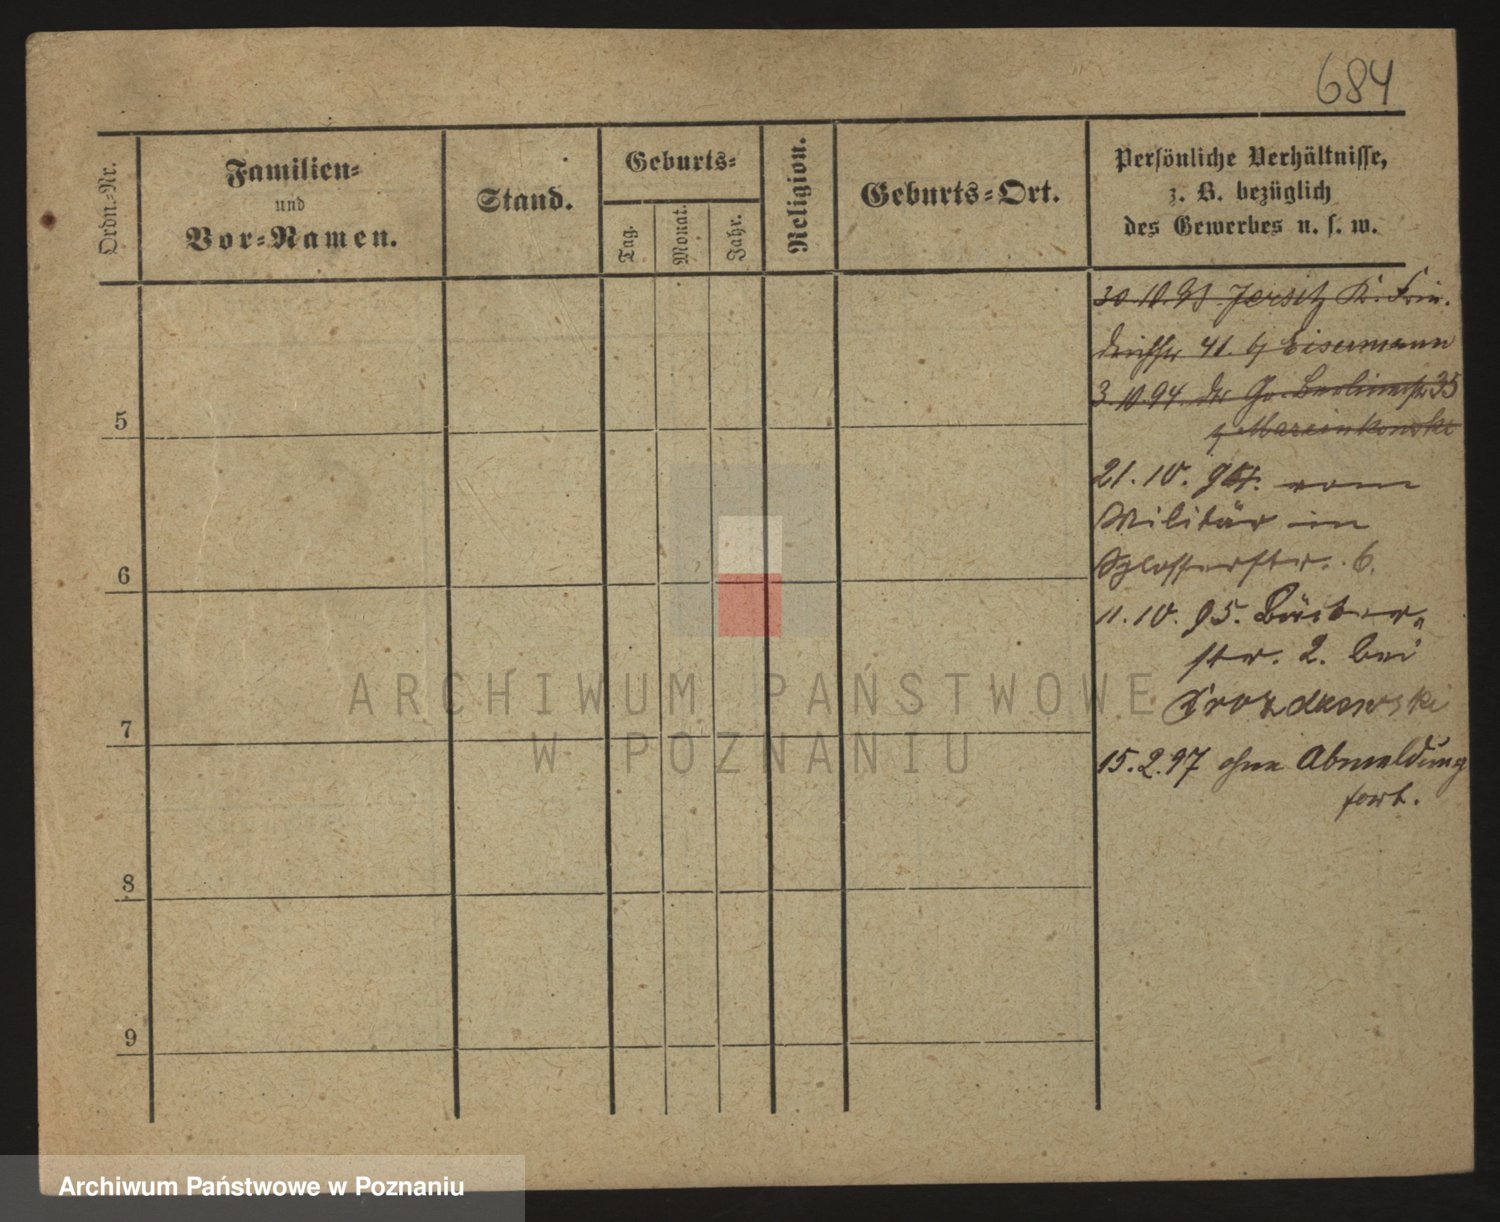 684
Ordn.-Nr.
Familien-
und
Vor-Namen.
Stand.
Geburts-
Tag.
Monat.
Jahr.
Religion.
Geburts-Ort.
Persönliche Verhältnisse,
z. B. bezüglich
des Gewerbes u. s. w.
30.10.93 Jersitz K. Frie-
drichstr 41. b/ Eisermann
3.10.94. Gr. Berlinerstr 35
b/ Marcinkowski
21.10. 94. vom
Militär in
Schlosserstr. 6.
11.10.95. Bäcker-
str. 2. bei
15.2.97 ohne Abmeldung
fort.
5
6
7
8
9
ARCHIWUM PAŃSTWOWE
W POZNANIU
Archiwum Państwowe w Poznaniu